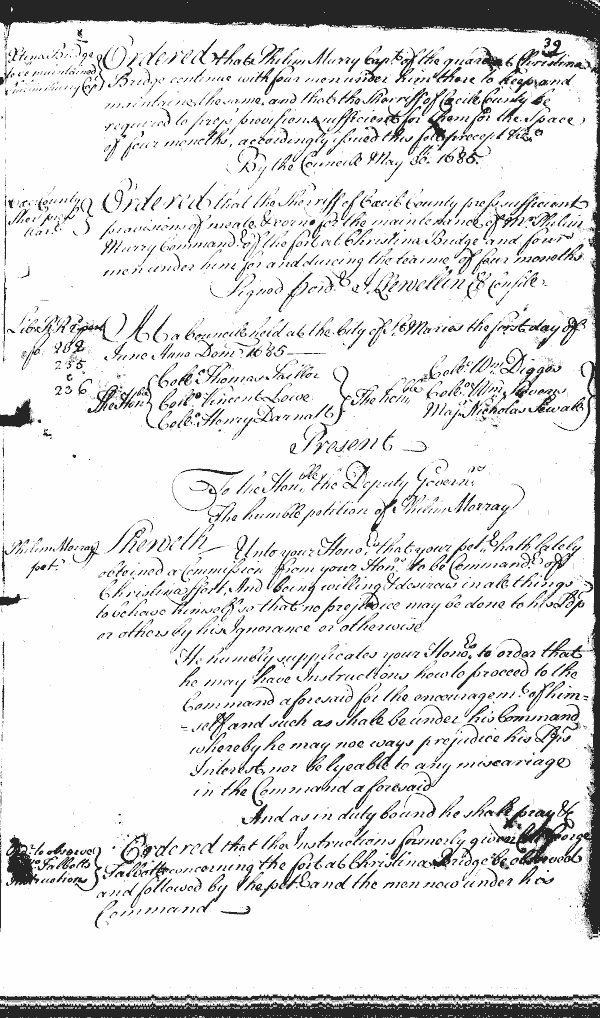 39
Xtina Bridge
Ordered that Philim Murry Capt. of the guard at Christina
Bridge continue with four men under him there to keep and
maintaine the same, and that the Sherriff of Cecil County be
required to press provisions sufficient for them for the space
of four months, accordingly issued this foll precept &c.
By the Councill May 30. 1685.
Cec: County
Ordered that the Sherriff of Cecil County press sufficient
provisions of meate & corne for the maintenance of Mr. Philim
Murry Command. of the fort at Christina Bridge and four
men under him for and during the tearme of four months
Signed p ord. J. Llewellin Cl Consile.
Lib R R
fo. 282
At a Councill held at the City of St. Maries the first day of
June Anno Domi 1685
235
&
236
The Honble
Coll. Thomas Tailler
Coll. Vincent Lowe
Coll. Henry Darnall
The honble
Coll. Wm. Digges
Coll. Wm. Stevens
Maj. Nicholas Sewall
Present
To the Honble the Deputy Governrs
The humble petition of Philim Morray
Philim Morray
pet.
Sheweth
Unto your Honors that your petr. hath lately
obtained a Commission from your Honrs. to be Commandr. of
Christina ffort, And being willing & desirous in all things
to behave himself so that no prejudice may be done to his Lpp
or others by his Ignorance or otherwise
He humbly supplicates your Honors to order that
he may have Instructions how to proceed to the
Command aforesaid for the encouragemt. of him=
=self and such as shall be under his Command
whereby he may noe ways prejudice his Lpps
Interest, nor be lyeable to any miscarriage
in the Command aforesaid
And as in duty bound he shall pray &c
to observe
Talbotts
Instructions
Ordered that the Instructions formerly given by George
Talbott concerning the fort at Christina Bridge be observed
and followed by the petr. and the men now under his
Command